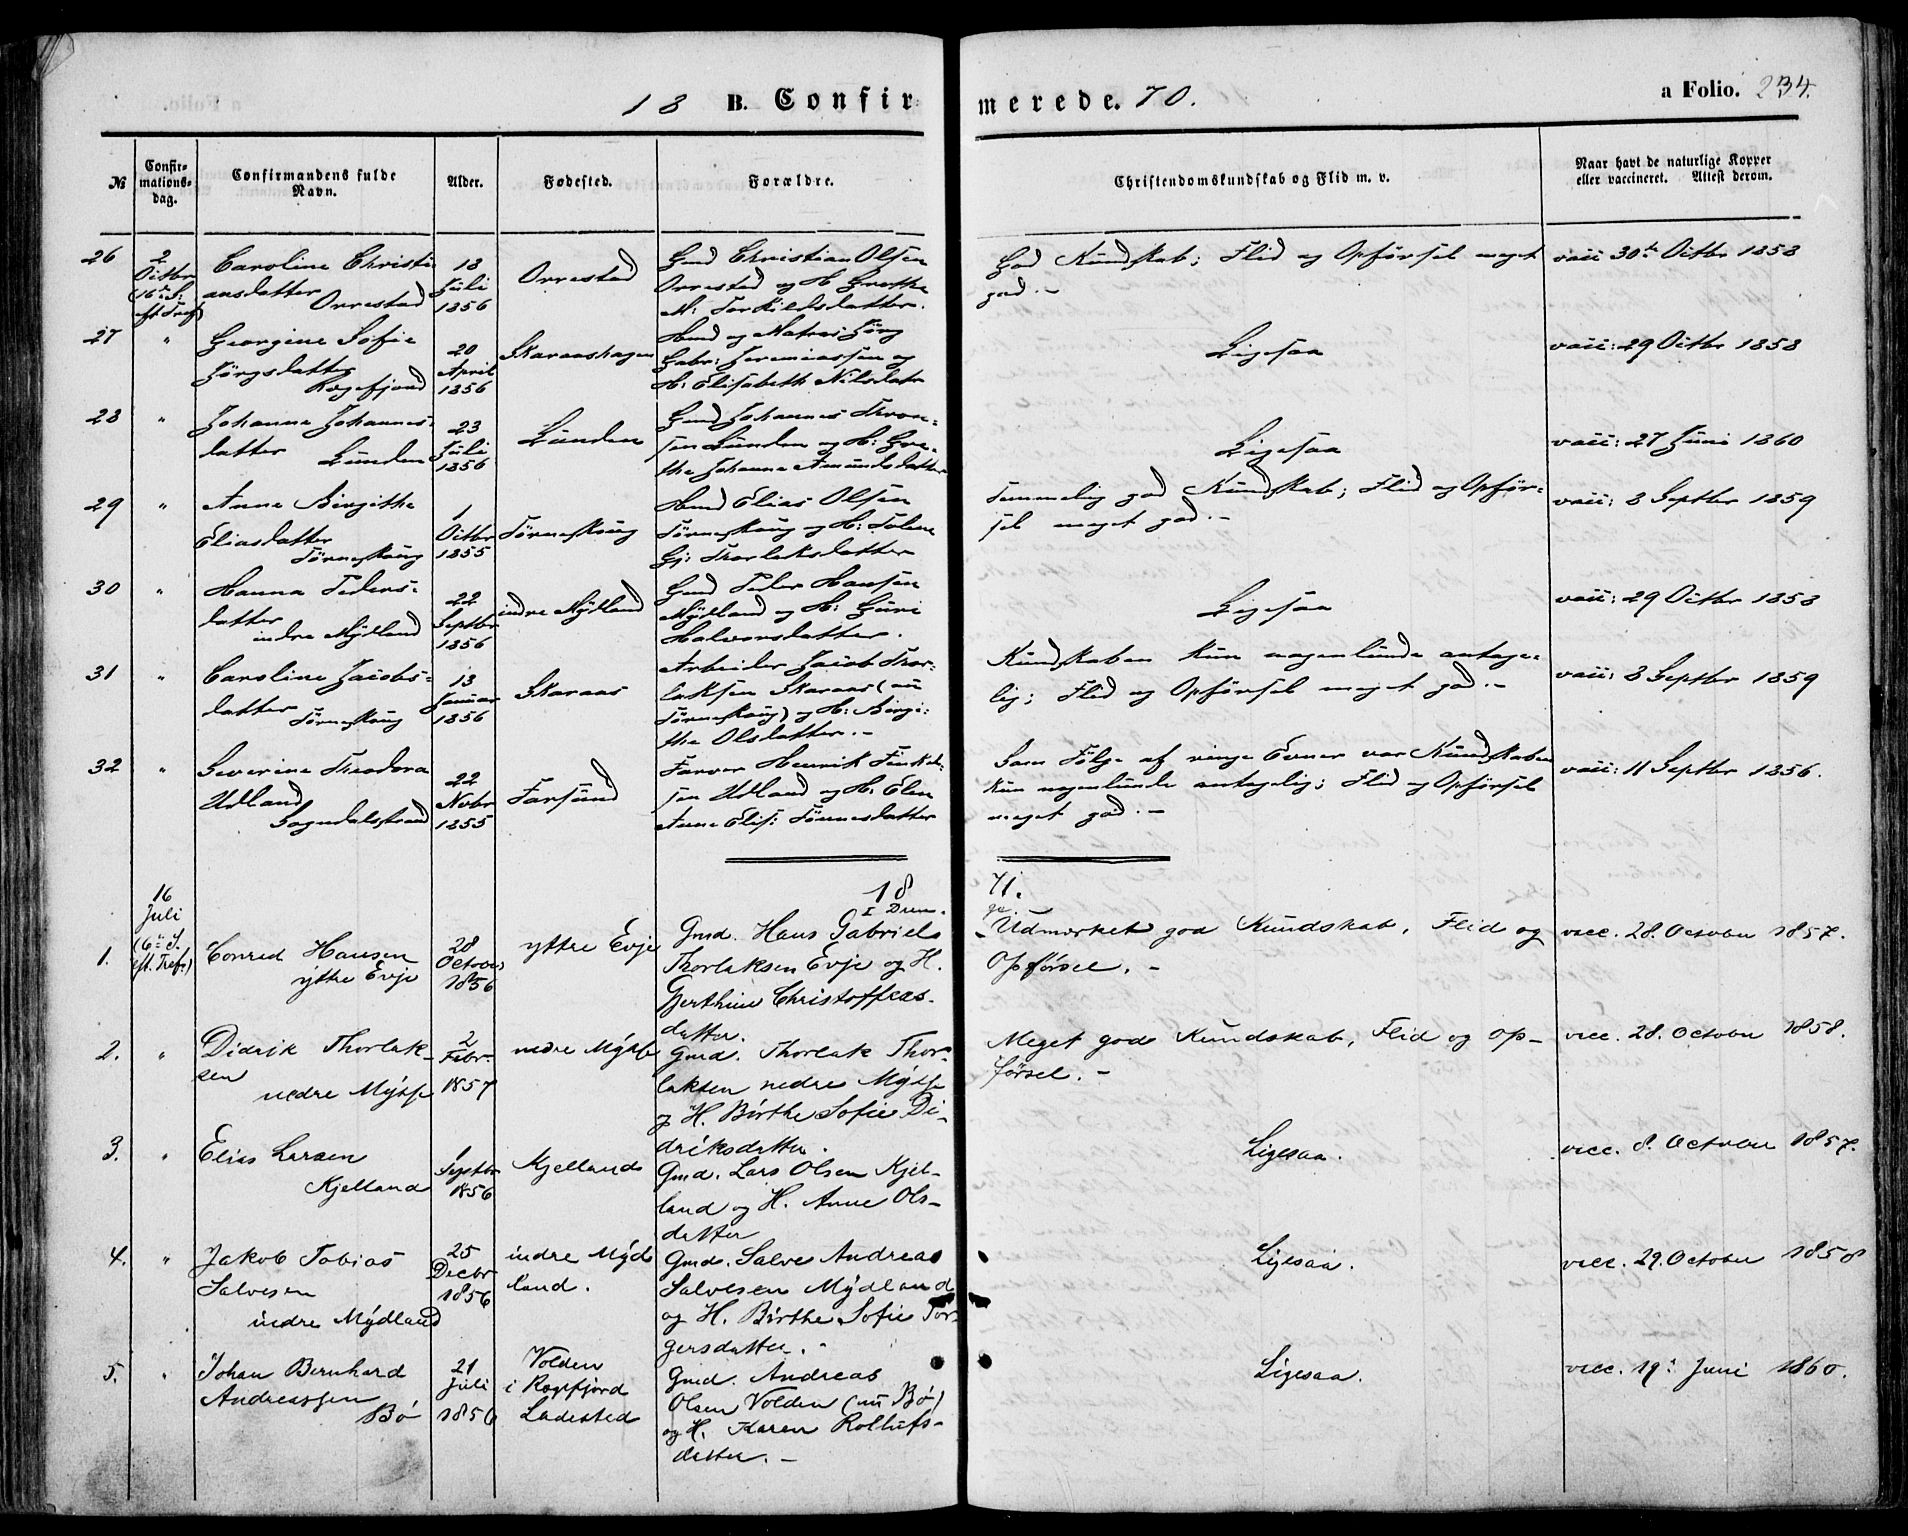 18 B. Confirmerede. 70. a Folio. 234.
№ Confirmations-dag. Confirmandens fulde Navn. Alder. Fødested. Forældre. Christendomskundskab og Flid m. v. Naar havt de naturlige Kopper eller vaccineret. Attest derom.
26 2 Octbr (16de S: eft Tref) Caroline Christi
ansdatter
Orrestad
18
Juli
1856
Orrestad
Gmd Christian Olsen
Orrestad og H Grethe
M: Torkildsdatter.
God Kundskab; Flid og Opførsel meget
god. -
vacc 30te Octbr 1858
27 " Georgine Sofie
Jörgsdatter
Rægefjord
20
April
1856
Skaraashagen
Hmd og Matros Jörg
Gabr: Jeremiassen og
H: Elisabeth Nilsdatr
Ligesaa
vacc: 29 Octbr 1858
28 " Johanna Johannes-
datter
Lunden
23
Juli
1856
Lunden
Gmd Johannes Tron-
sen Lunden og H: Gre-
the Johanna Amundsdatter
Ligesaa
vacc: 27 Juni 1860
29 " Anne Birgithe
Eliasdatter
Törneskoug
1
Octbr
1855
Törneskoug
Hmd Elias Olsen
Törneskoug og H: Tolene
Gj: Thorlaksdatter
Temmelig god Kundskab; Flid og Opför-
sel meget god. -
vacc: 8 Septbr 1859
30 " Hanna Peders-
datter
indre Mydland
22
Septbr
1856
indre Mydland
Gmd Peder Hansen
Mydland og H: Guri
Halvorsdatter.
Ligesaa
vacc: 29 Octbr 1858
31 " Caroline Jacobs-
datter
Törneskoug
13
Januar
1856
Skaraas
Arbeider Jacob Thor-
laksen Skaraas (nu
Törneskoug) og H: Birgi-
the Olsdatter. -
Kundskaben kun nogenlunde antage-
lig; Flid og Opførsel meget god. -
vacc: 8 Septbr 1859
32 " Severine Theodora
Udland
Sogndalsstrand
22
Novbr
1855
Farsund
Farver Henrik Finkel-
sen Udland og H: Elen
Anne Elis: Tönnesdatter
Som Fölge af ringe Evner var Kundskaben
kun nogenlunde antagelig; Flid og Opførsel
meget god. -
vacc: 11 Septbr 1856.
18 71.
1. 16 Juli (6te S. eft. Tref.) Conrad Hansen
yttre Evje
28
October
1856
yttre Evje
Gmd. Hans Gabriel
Thorlaksen Evje og H.
Gjerthine Christoffers-
datter.
Udmærket god Kundskab, Flid og
Opførsel. -
vacc. 28. October 1857.
2. " Didrik Thorlak-
sen
nedre Mysse
2
Febr.
1857
nedre Mysse
Gmd. Thorlak Thor-
laksen nedre Mysse
og H. Birthe Sofie Di-
driksdatter.
Meget god Kundskab, Flid og Op-
førsel. -
vacc. 28. October 1858.
3. " Elias Larsen
Kjelland
1
Septbr
1856
Kjelland
Gmd. Lars Olsen Kjel-
land og H. Anne Ols-
datter
Ligesaa.
vacc. 8. October 1857.
4. " Jakob Tobias
Salvesen
indre Mydland
25
Decbr
1856
indre Myd
land.
Gmd. Salve Andreas
Salvesen Mydland
og H. Birthe Sofie Tor-
gersdatter. -
Ligesaa.
vacc. 29. October 1858
5. " Johan Bernhard
Andreassen
Bø
21
Juli
1856
Volden
i Rægefjord
Ladested
Gmd. Andreas
Olsen Volden (nu Bø)
og H. Karen Rollufs-
datter. -
Ligesaa.
vacc. 19. Juni 1860.